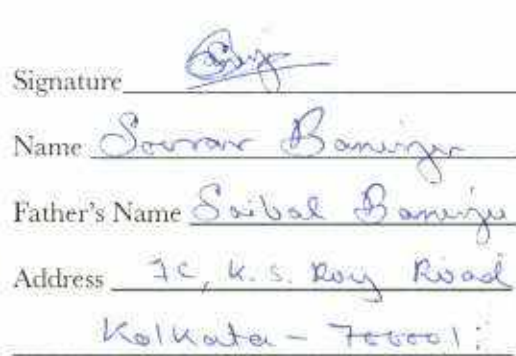 Signature
Name Sourav Banerjee
Father's Name Saibal Banerjee
Address 7C, K. S. Roy Road
Kolkata - 700001